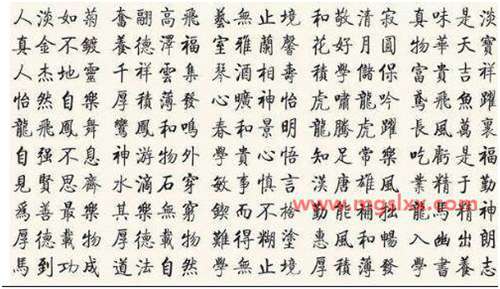 人淡如菊 奮翮高飛 藝無止境 和敬清寂 真味是淡
真金不鍍 養德澤福 室雅蘭馨 花好月圓 物華天寶
人杰地靈 千祥雲集 琴 壽 學儲 富貴吉祥
怡然自樂 厚積薄發 心曠神怡 虎嘯龍吟 鳶飛魚躍
龍飛鳳舞 鸞鳳和鳴 春和景明 龍騰虎躍 長風萬裏
自强不息 神游物外 學貴心悟 知足常樂 吃虧是福
見賢思齊 水滴石穿 敏事慎言 漢唐雄風 業精于勤
為善最樂 其樂無窮 鍥而不捨 勤能補拙 龍馬精神
厚德載物 厚德載物 難得糊塗 惠風和暢 入幽出朗
馬到功成 道法自然 學無止境 厚積薄發 學書養志
www.mgslxx.com